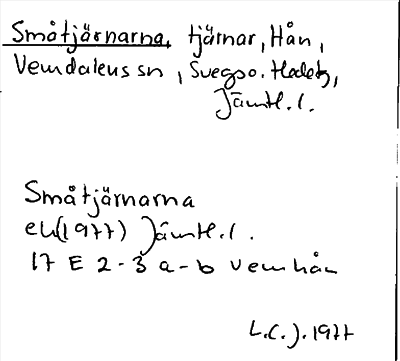 Småtjärnarna, tjärnar, Hån,
Vemdalens sn, Svegs o. Hedeb,
Jämtl. l.
Småtjärnarna
ek(1977) Jämtl. l.
17 E 2-3 a-b Vemhån
L.C.J. 1977